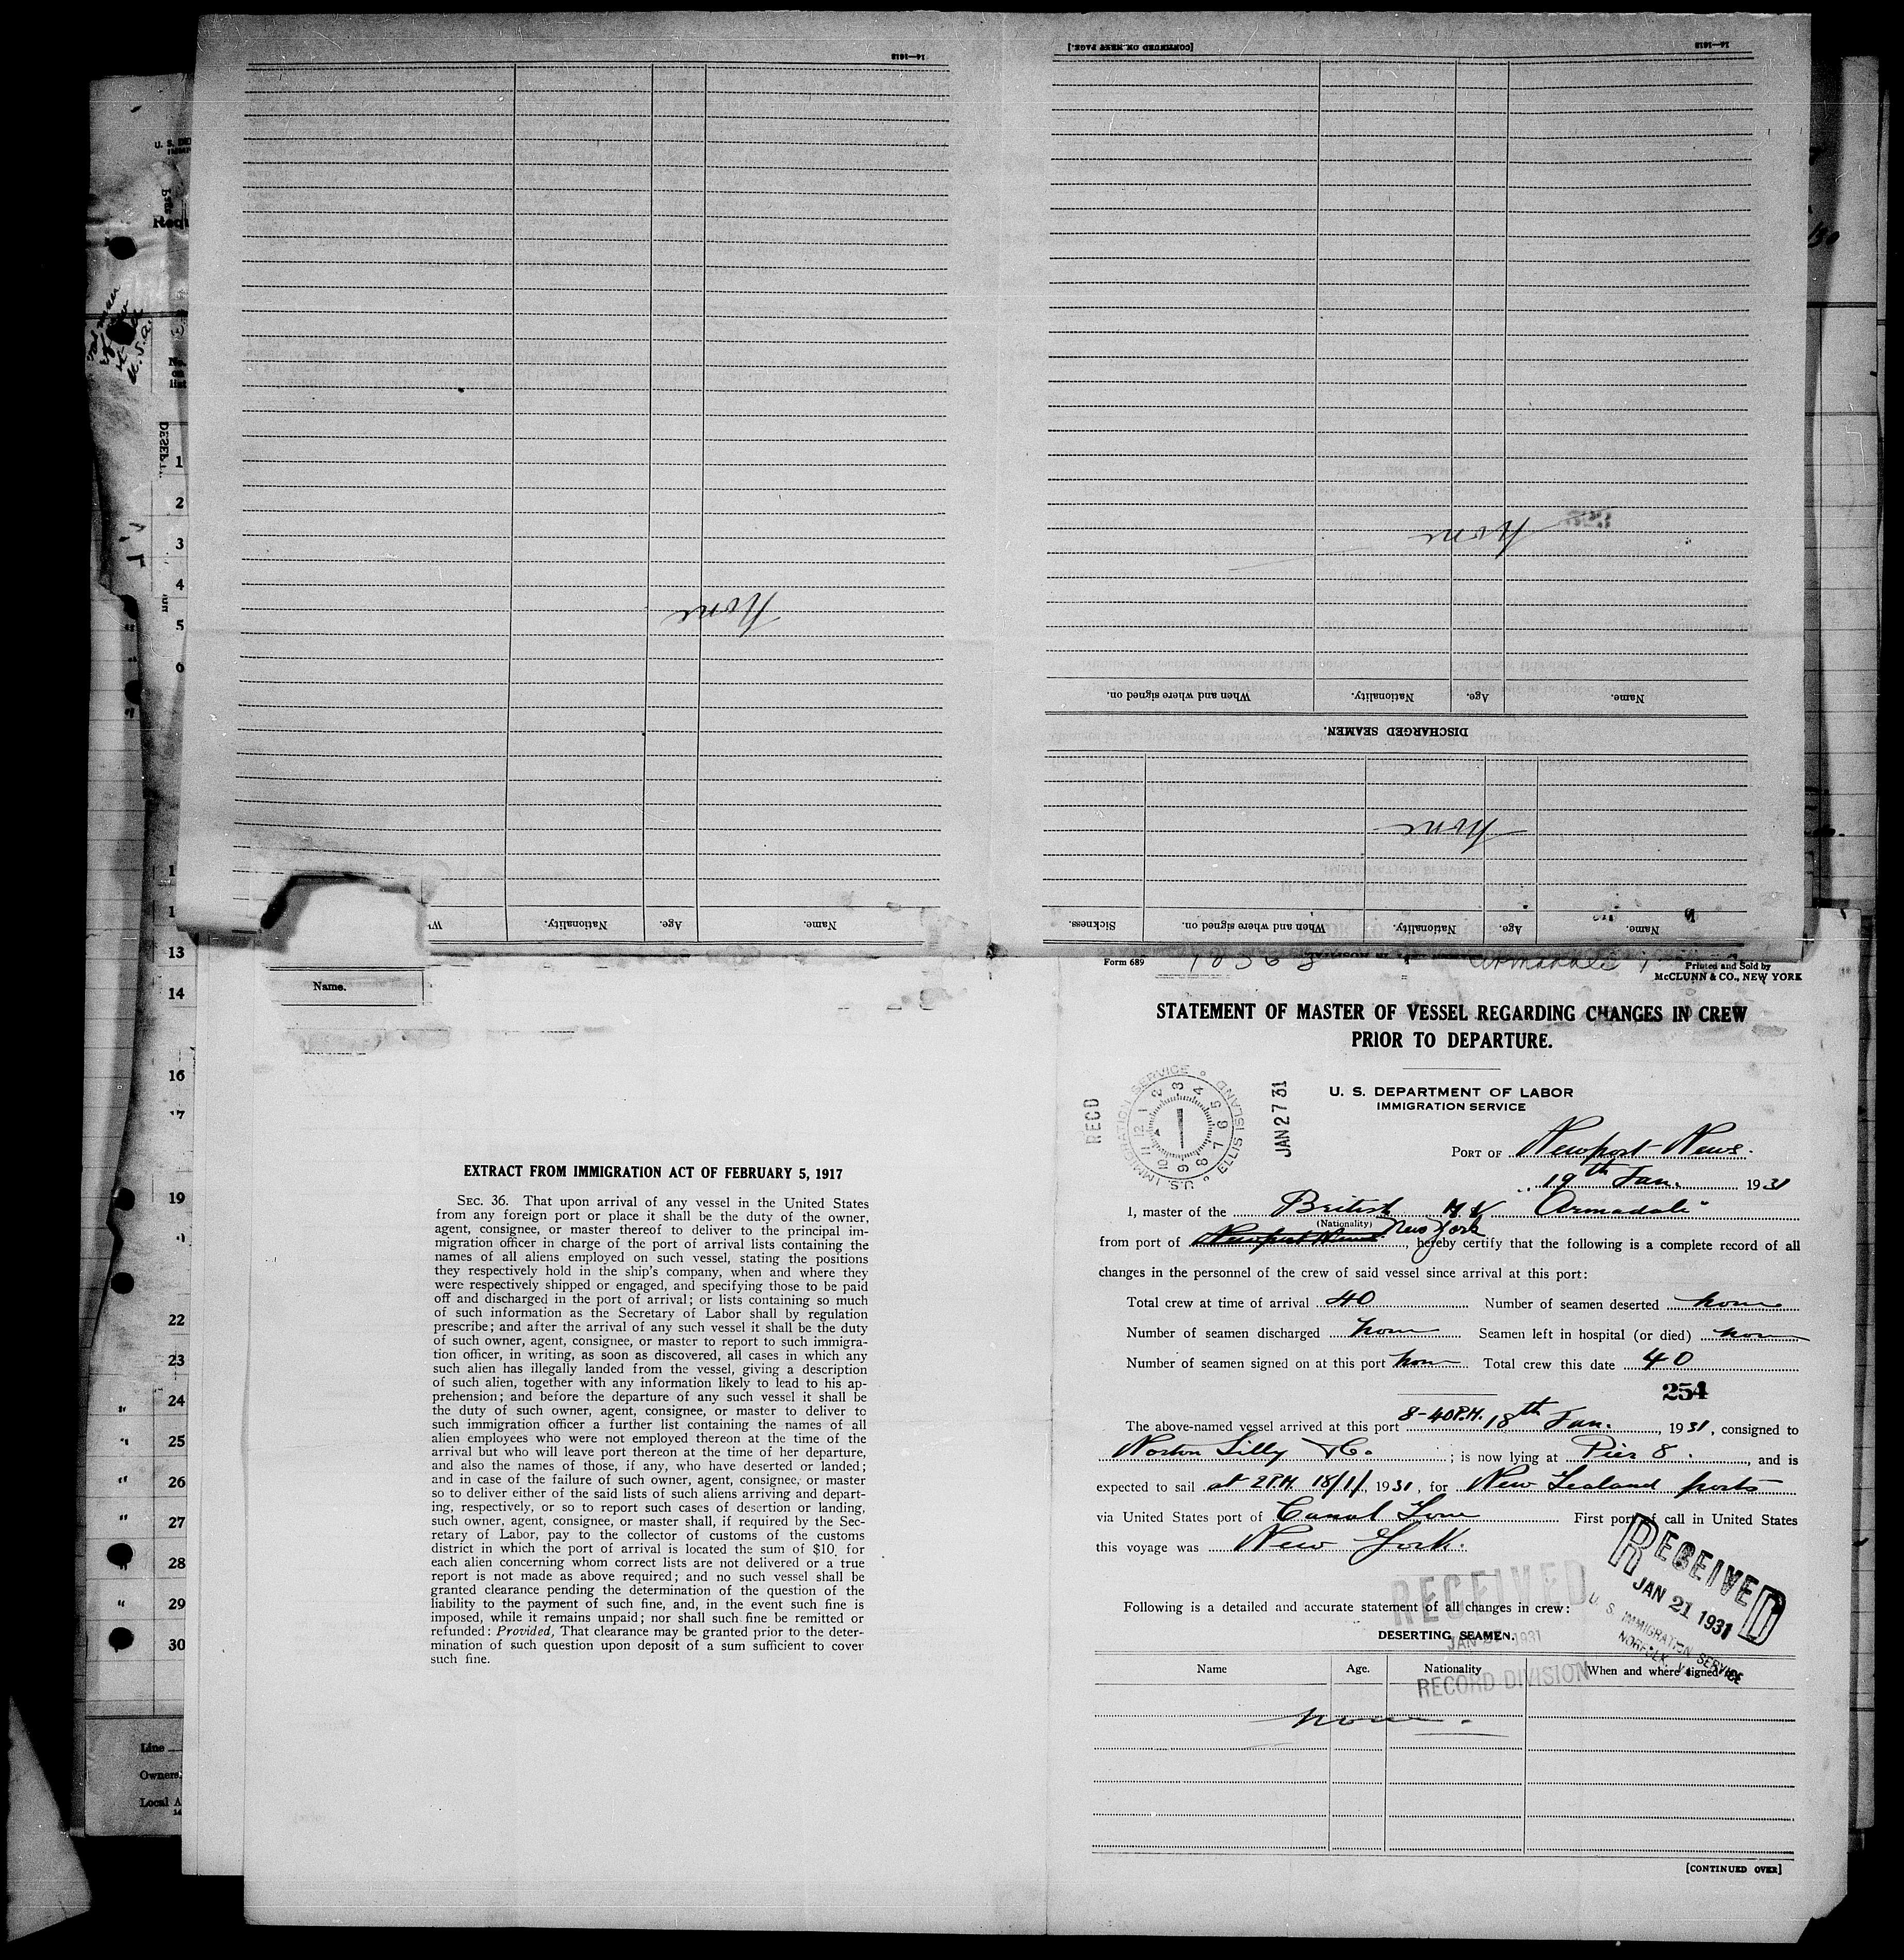 14—1618
[CONTINUED ON NEXT PAGE.]
14—1618
None
None
Name. Age. Nationality. When and where signed on.
DISCHARGED SEAMEN.
None
Name. Age. Nationality. When and where signed on. Sickness.
Name. Age. Nationality. W
U. S. DE
Requ
No. on list
U. S. A.
1
2
3
4
5
6
13
14
16
17
19
22
23
24
25
26
27
28
29
30
Line
Owners
Local A
Name.
EXTRACT FROM IMMIGRATION ACT OF FEBRUARY 5, 1917
SEC. 36. That upon arrival of any vessel in the United States
from any foreign port or place it shall be the duty of the owner,
agent, consignee, or master thereof to deliver to the principal im-
migration officer in charge of the port of arrival lists containing the
names of all aliens employed on such vessel, stating the positions
they respectively hold in the ship's company, when and where they
were respectively shipped or engaged, and specifying those to be paid
off and discharged in the port of arrival; or lists containing so much
of such information as the Secretary of Labor shall by regulation
prescribe; and after the arrival of any such vessel it shall be the duty
of such owner, agent, consignee, or master to report to such immigra-
tion officer, in writing, as soon as discovered, all cases in which any
such alien has illegally landed from the vessel, giving a description
of such alien, together with any information likely to lead to his ap-
prehension; and before the departure of any such vessel it shall be
the duty of such owner, agent, consignee, or master to deliver to
such immigration officer a further list containing the names of all
alien employees who were not employed thereon at the time of the
arrival but who will leave port thereon at the time of her departure,
and also the names of those, if any, who have deserted or landed;
and in case of the failure of such owner, agent, consignee, or master
so to deliver either of the said lists of such aliens arriving and depart-
ing, respectively, or so to report such cases of desertion or landing,
such owner, agent, consignee, or master shall, if required by the Sec-
retary of Labor, pay to the collector of customs of the customs
district in which the port of arrival is located the sum of $10, for
each alien concerning whom correct lists are not delivered or a true
report is not made as above required; and no such vessel shall be
granted clearance pending the determination of the question of the
liability to the payment of such fine, and, in the event such fine is
imposed, while it remains unpaid; nor shall such fine be remitted or
refunded: Provided, That clearance may be granted prior to the deter-
mination of such question upon deposit of a sum sufficient to cover
such fine.
Form 689 Armadale Printed and Sold by
McCLUNN & CO., NEW YORK
STATEMENT OF MASTER OF VESSEL REGARDING CHANGES IN CREW
PRIOR TO DEPARTURE.
U. S. DEPARTMENT OF LABOR
IMMIGRATION SERVICE
RECD
U.S. IMMIGRATION SERVICE ELLIS ISLAND
1 2 3 4 5 6 7 8 9 10 11 12
JAN 27 31
PORT OF Newport News.
19th Jan. 1931
I, master of the British M.V. "Armadale"
(Nationality)
from port of Newport News New York, hereby certify that the following is a complete record of all
changes in the personnel of the crew of said vessel since arrival at this port:
Total crew at time of arrival 40 Number of seamen deserted none
Number of seamen discharged none Seamen left in hospital (or died) none
Number of seamen signed on at this port none Total crew this date 40
254
The above-named vessel arrived at this port 8-40 P.M. 18th Jan., 1931, consigned to
Norton Lilly & Co. ; is now lying at Pier 8., and is
expected to sail at 2 P.M. 18/1/, 1931, for New Zealand ports
via United States port of Canal Zone First port of call in United States
this voyage was New York.
RECEIVED
JAN 21 1931
U. S. IMMIGRATION SERVICE
NORFOLK, VA.
Following is a detailed and accurate statement of all changes in crew:
RECEIVED
JAN 1931
RECORD DIVISION
DESERTING SEAMEN.
Name Age. Nationality When and where signed on
none.
[CONTINUED OVER]